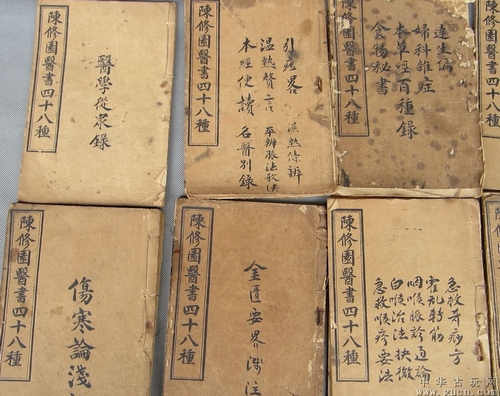 陳修園醫書四十八種
醫學從衆錄
陳修園醫書四十八種
引痘畧
溫熱贅言 濕熱條辨
本經便讀 平辨脉法歌诀
名醫別錄
陳修園醫書四十八種
達生編
婦科雜症
本草經百種錄
食物秘書
陳修園醫書四十八種
傷寒論淺
陳修園醫書四十八種
金匱要畧淺注
陳修園醫書四十八種
急救奇痧方
霍亂轉筋
咽喉脉診通論
白喉治法抉微
急救喉疹要法
中华古玩网
www.gucn.com